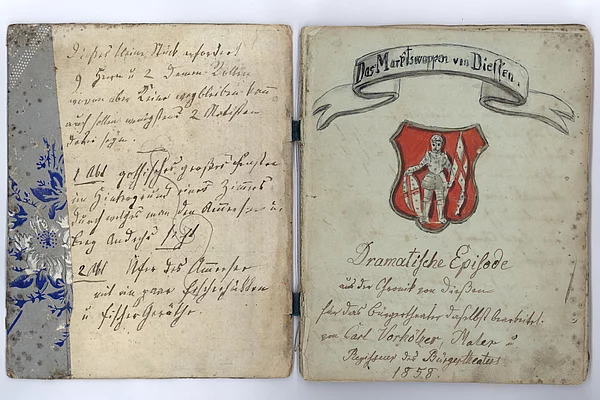 Dieses kleine Stück erfordert
9 Herrn u 2 Damen-Rollen
wovon aber Keine wegbleiben kann
auch sollen wenigstens 2 Statisten
dabei seyn.
1 Akt gothisches großes Fenster
im Hintergrund eines Zimers
durch welches man den Ammersee u
berg Andechs sieht
2 Akt Ufer des Ammersee
mit ein paar Fischerhütten
u Fischer Geräthe.
Das Marktswappen von Diessen.
Dramatische Episode
aus der Chronik von Dießen
für das Bürgertheater daselbst bearbeitet.
von Carl Verhölzer, Maler u
Regisseur des Bürgertheaters
1858.